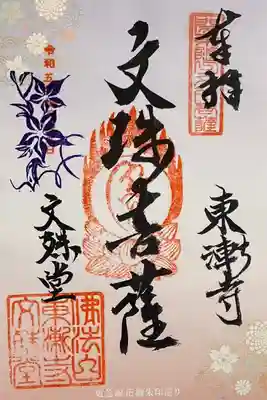 奉拝
令和五
文殊菩薩
東漸寺
文殊堂
佛法山
東漸寺
文殊堂